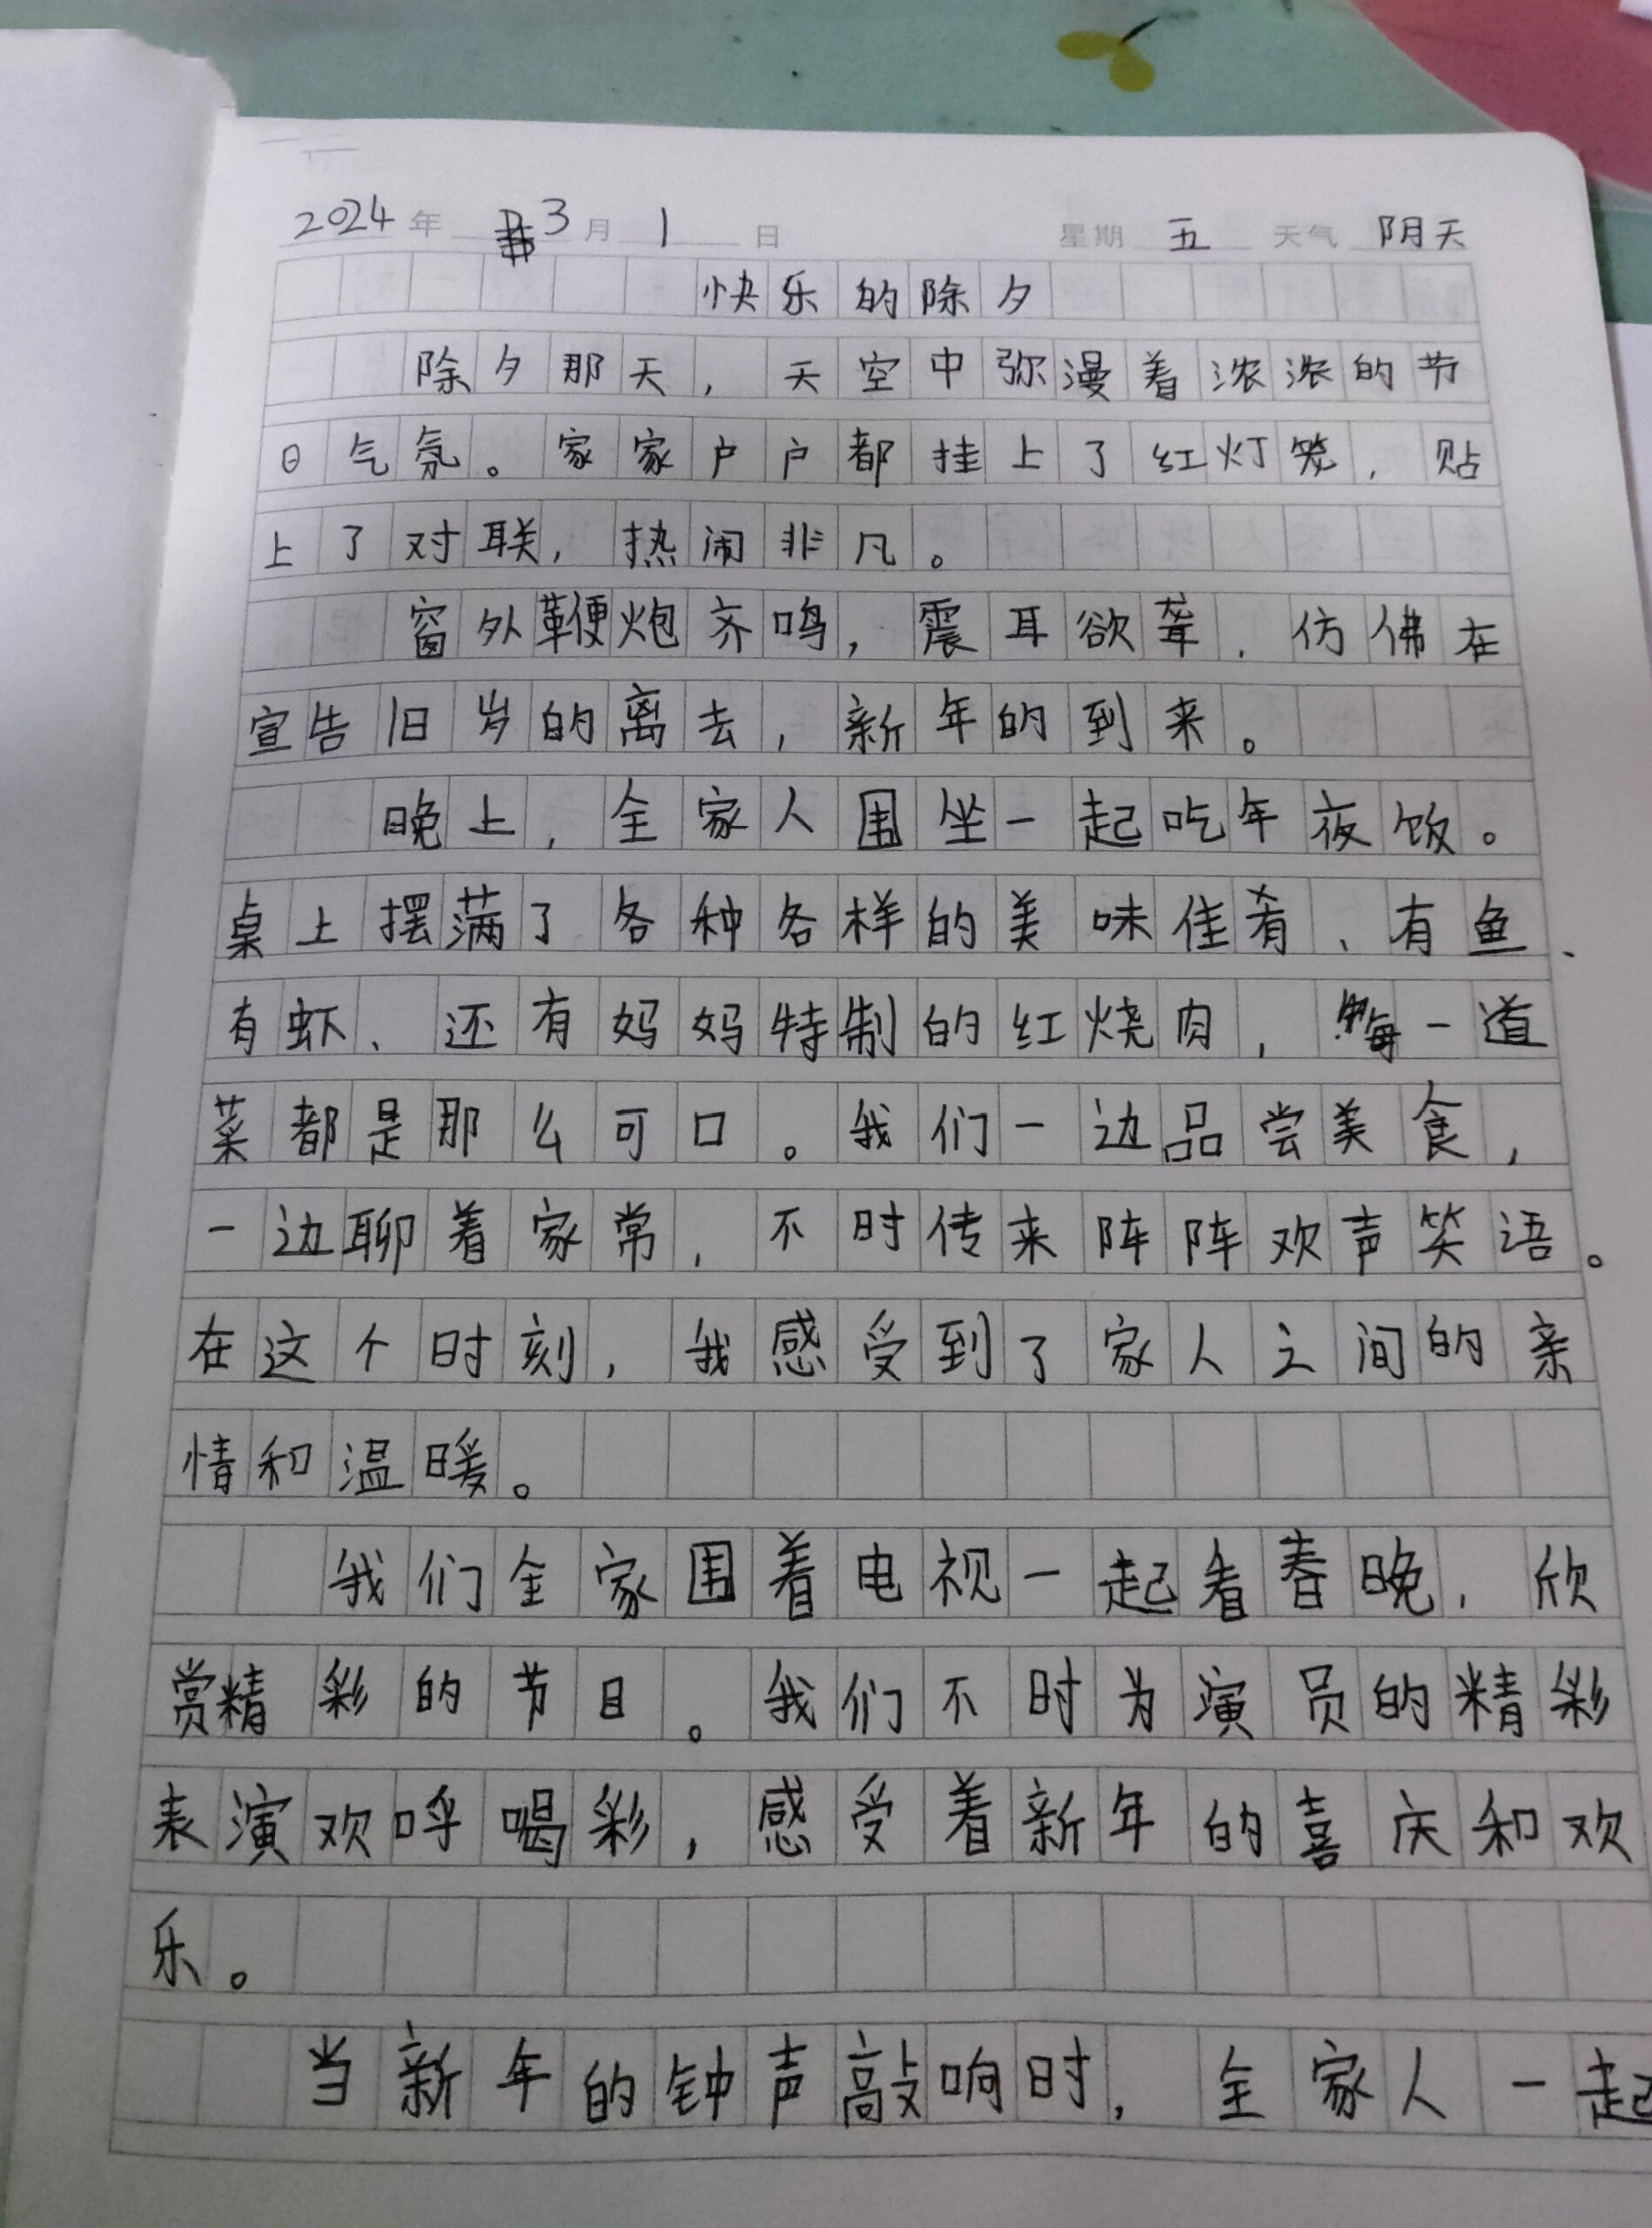 2024年 3月 1日 星期 五 天气 阴天
快乐的除夕
除夕那天，天空中弥漫着浓浓的节
日气氛。家家户户都挂上了红灯笼，贴
上了对联，热闹非凡。
窗外鞭炮齐鸣，震耳欲聋，仿佛在
宣告旧岁的离去，新年的到来。
晚上，全家人围坐一起吃年夜饭。
桌上摆满了各种各样的美味佳肴、有鱼、
有虾、还有妈妈特制的红烧肉，每一道
菜都是那么可口。我们一边品尝美食，
一边聊着家常，不时传来阵阵欢声笑语。
在这个时刻，我感受到了家人之间的亲
情和温暖。
我们全家围着电视一起看春晚，欣
赏精彩的节目。我们不时为演员的精彩
表演欢呼喝彩，感受着新年的喜庆和欢
乐。
当新年的钟声敲响时，全家人一起